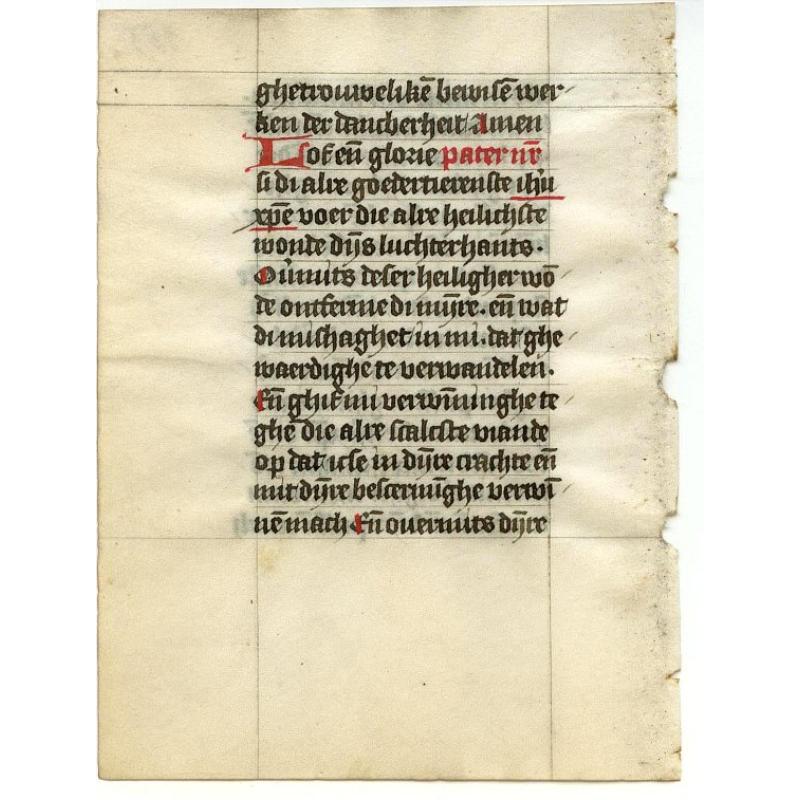 ghetrouwelikē bewisē wer-
ken der dancberheit Amen
Lof eñ glorie pater nr̄
si di alre goedertierenste ih̄u
xp̄e voer die alre heilichste
wonde dijns luchterhants.
Om̄mits deser heiligher wō-
de ontferme di mijre. eñ wat
di mishaghet in mi. dat ghe-
waerdighe te verwandelen.
Eñ ghif mi verwīninghe te-
ghē die alre scalcste viande
op dat icse in dijre crachte eñ
mit dijre bescermīghe verwī-
nē mach Eñ overmits dijre